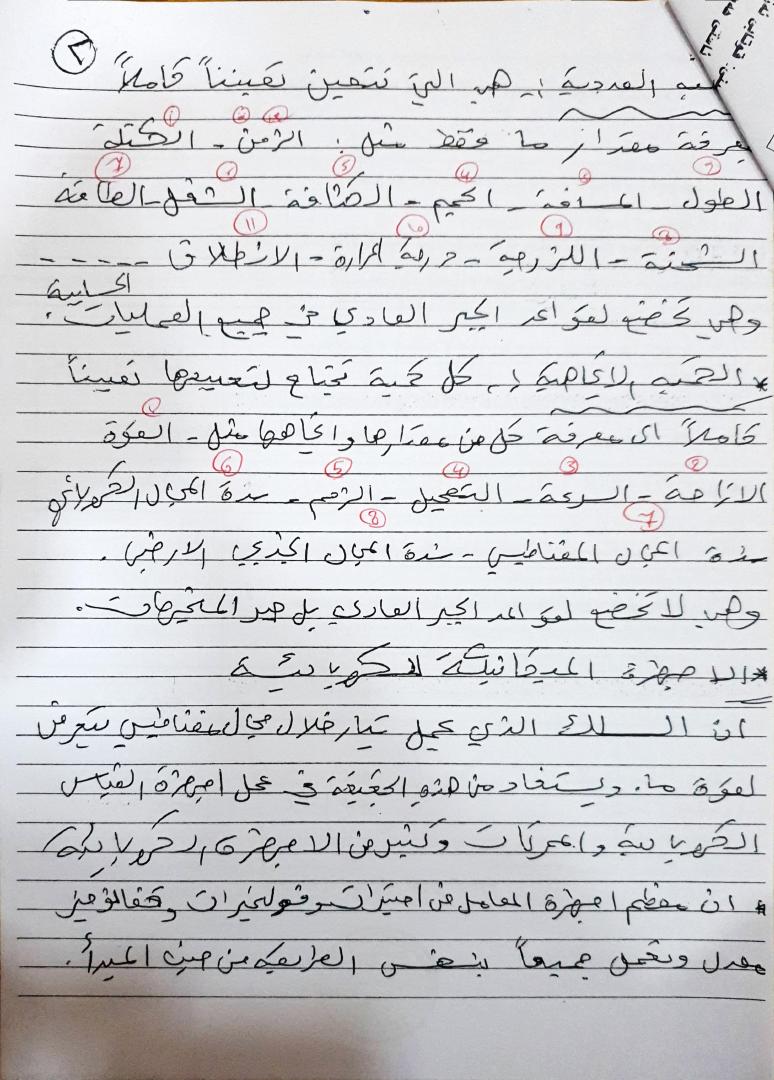 ٧
العددية :- هي التي تتعين تعييناً كاملاً
بمعرفة مقدار ما فقط مثل : الزمن - الكتلة
الطول - المسافة - الحجم - الكثافة - الشغل - الطاقة
الشحنة - اللزوجة - درجة الحرارة - الانطلاق - - - - -
وهي تخضع لقواعد الجبر العادي في جميع العمليات الحسابية .
* الكمية الاتجاهية :- كل كمية تحتاج لتعيينها تعييناً
كاملاً الى معرفة كل من مقدارها واتجاهها مثل - القوة
الازاحة - السرعة - التعجيل - الزخم - شدة المجال الكهربائي
شدة المجال المغناطيسي - شدة المجال الجذبي الارضي .
وهي لا تخضع لقواعد الجبر العادي بل جبر المتجهات .
* الاجهزة الميكانيكية الكهربائية
ان السلك الذي يحمل تيار خلال مجال مغناطيسي يتعرض
لقوة ما . ويستفاد من هذه الحقيقة في عمل اجهزة القياس
الكهربائية والمحركات وكثير من الاجهزة الكهربائية
* ان معظم اجهزة المعامل من اميترات وفولتميترات
معدل وتعمل جميعاً بنفس الطريقة من حيث المبدأ .